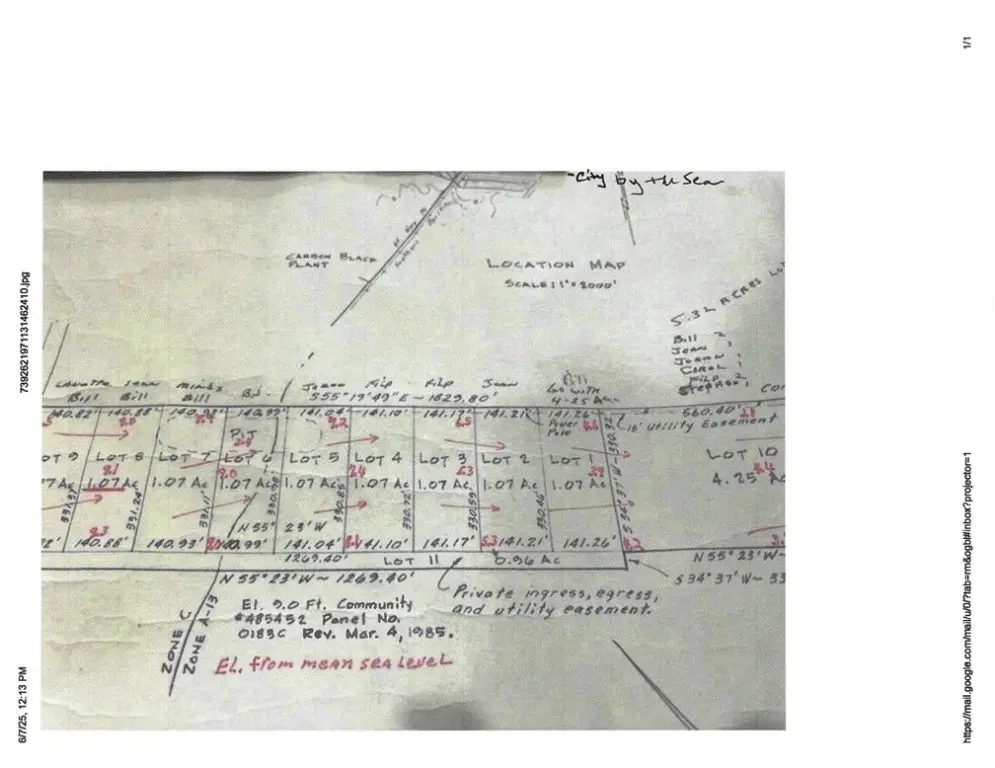 6/7/25, 12:13 PM
7392621971131462410.jpg
City by the Sea
CARBON BLACK
PLANT
LOCATION MAP
SCALE: 1"=2000'
5.32 ACRES
Bill 2
JEAN
JOANN
CAROL
FILP 2
STEPHEN 1
Bill Bill Bill B.J. Joann Filp Filp Jean
S55°19'49"E ~ 1829.80'
4.25
140.82' 140.88' 140.93' 140.99' 141.04' 141.10' 141.17' 141.21' 141.26' 560.40'
Power
Pole
15' Utility Easement
PIT
LOT 9 LOT 8 LOT 7 LOT 6 LOT 5 LOT 4 LOT 3 LOT 2 LOT 1 LOT 10
1.07 Ac 1.07 Ac 1.07 Ac 1.07 Ac 1.07 Ac 1.07 Ac 1.07 Ac 1.07 Ac 4.25 Ac
331.24' 331.11' 330.85' 330.72' 330.59' 330.46' S 34°37' W ~ 330.32'
N 55° 23' W
140.88' 140.93' 140.99' 141.04' 141.10' 141.17' 141.21' 141.26'
1269.40' LOT 11 0.96 Ac
N 55° 23' W ~
N 55° 23' W ~ 1269.40'
S 34° 37' W ~ 33
Private ingress, egress,
and utility easement.
El. 9.0 Ft. Community
#485452 Panel No.
0183C Rev. Mar. 4, 1985.
ZONE C
ZONE A-13
EL. from mean sea level
https://mail.google.com/mail/u/0/?tab=rm&ogbl#inbox?projector=1
1/1